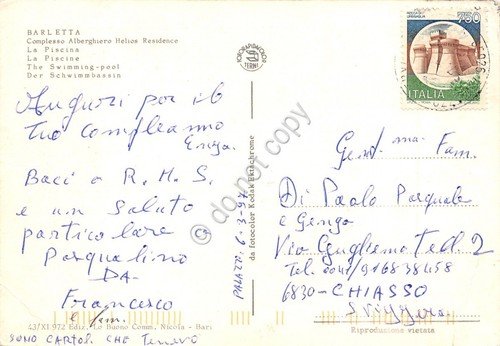 BARLETTA
Complesso Alberghiero Helios Residence
La Piscina
La Piscine
The Swimming-pool
Der Schwimmbassin
Auguri per il
Tuo compleanno
Genza.
Baci a R. M. S.
e un saluto
particolare a
Pasqualino
DA
Francesco
e fam.
43/XI-972 Ediz. Lo Buono Comm. Nicola - Bari
SONO CARTOL. CHE TENEVO
PALAZZO. 6-3-97
da fotocolor Kodak Ektachrome
FOTORAPIDACOLOR
TERNI
do not copy
750
ITALIA
Gent.ma Fam.
Di Paolo Pasquale
e Genza
Via Guglielmo Tell 2
Tel. 0041/9168 38458
6830-CHIASSO
Svizzera
Riproduzione vietata